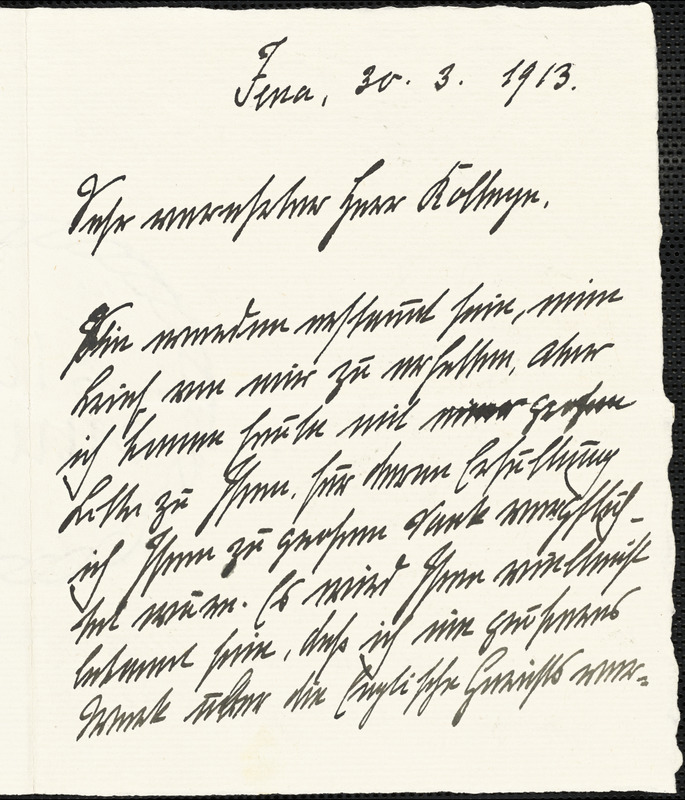 Jena, 30. 3. 1913.
Sehr verehrter Herr Kollege.
Sie werden erstaunt sein, einen
Brief von mir zu erhalten, aber
ich komme heute mit einer großen
Bitte zu Ihnen, für deren Erfüllung
ich Ihnen zu großem Dank verpflich-
tet wäre. Es wird Ihnen vielleicht
bekannt sein, daß ich ein größeres
Werk über die Englische Gerichtsver-